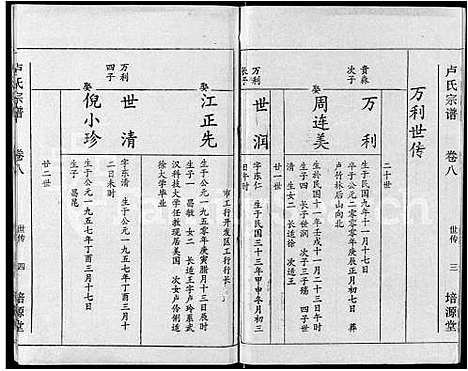 卢氏宗谱
卷八
世传
三
培源堂
万利世传
二十世
贵森
次子
万利
生於民国九年十一月十一日
卒于公元二零零零年庚辰正月初七
葬
卢竹林后山向北
娶
周连美
生於民国十一年壬戌十一月二十三日
子四
长子世润
次子三子殇
四子世
清
生女二
长适徐
次适王
廿一世
万利
长子
世润
字东仁
生于民国三十三年甲申冬月初三
日午时
娶
江正先
生于公元一九五零年庚寅腊月十三日辰时
生子一
勗敏
女二
长适王字卢玲系武
汉科技大学任教现居美国
次女卢伶俐适
徐大学毕业
市工行开发区工行行长
万利
四子
世清
字东清
生于公元一九五七年丁酉三月十
二日未时
娶
倪小珍
生于公元一九五七年丁酉三月十七日
生子
勗昆
廿二世
卢氏宗谱
卷八
世传
四
培源堂